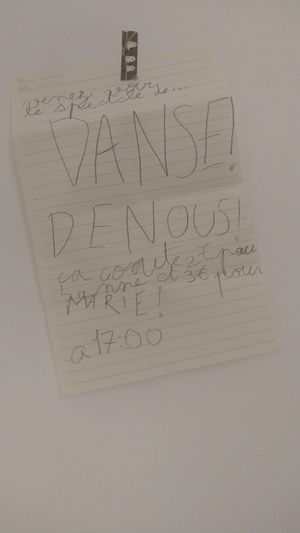 venez voir
le spectacle de...
DANSE!
DE NOUS!
ça coûte 2€ par
et 3€ pour
MARIE!
a 17:00